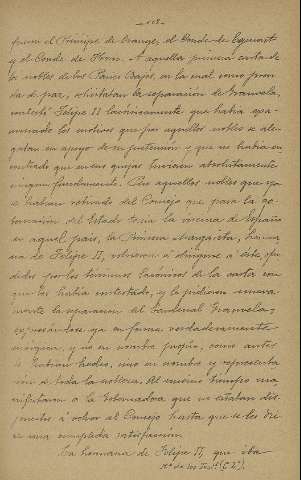 fueron el Príncipe de Orange, el Conde de Egmont
y el Conde de Horn. A aquella primera carta de
los nobles de los Paises Bajos, en la cual como pren
da de paz, solicitaban la separacion de Granvela,
contestó Felipe II lacónicamente que habia exa-
minado los motivos que por aquellos nobles se ale-
gaban en apoyo de su pretension y que no habia en-
contrado que en sus quejas tuvieran absolutamente
ningun fundamento. Pero aquellos nobles que ya
se habian retirado del Consejo que para la go-
bernacion del Estado tenia la vireina de España
en aquel pais, la Princesa Margarita, herma
na de Felipe II, volvieron á dirigirse á éste, ofen
didos por los términos lacónicos de la carta con
que les habia contestado, y le pidieron nueva-
mente la separacion del Cardenal Granvela,
expresándose ya en forma verdaderamente
enérgica, y no en nombre propio, como antes
lo habian hecho, sino en nombre y representa
ción de toda la nobleza. Al mismo tiempo ma
nifestaron á la Gobernadora que no estaban dis-
puestos á volver al Consejo hasta que se les die
se una cumplida satisfaccion.
La hermana de Felipe II, que iba